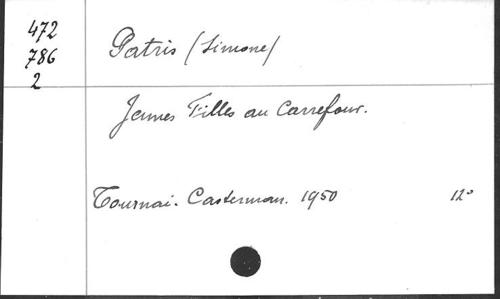 472
786
2
Patris (Simone)
Jeunes Filles au Carrefour.
Tournai. Casterman. 1950 12°